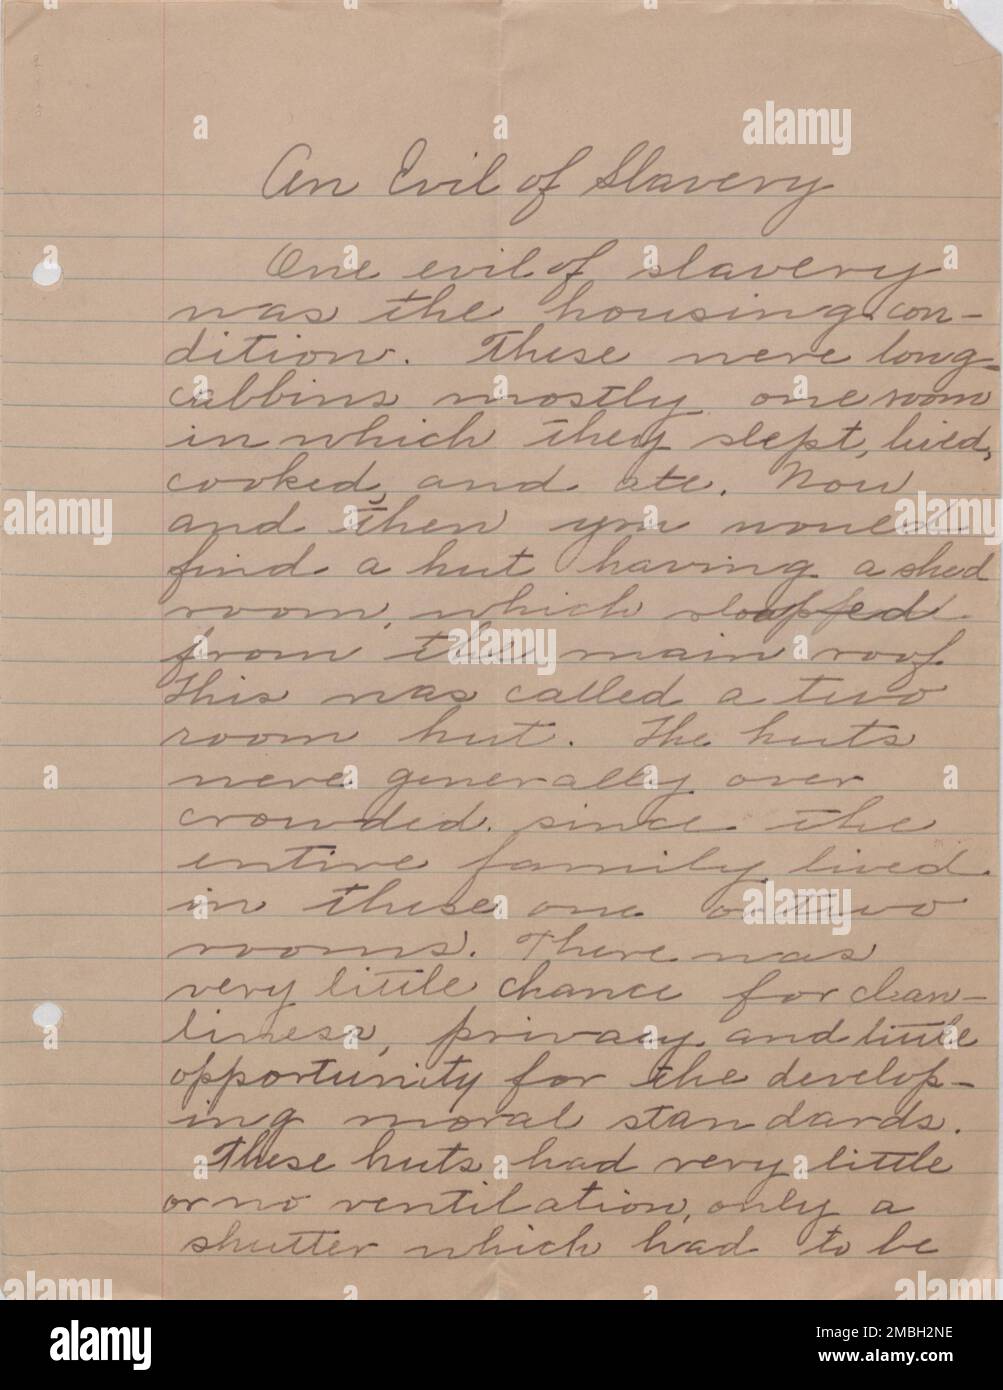 An Evil of Slavery
One evil of slavery
was the housing con-
dition. These were long
cabbins mostly one room
in which they slept, lived,
cooked, and ate. Now
and then you would
find a hut having a shed
room, which slopped
from the main roof.
This was called a two
room hut. The huts
were generally over
crowded since the
entire family lived
in these one or two
rooms. There was
very little chance for clean-
liness, privacy and little
opportunity for the develop-
ing moral standards.
These huts had very little
or no ventilation, only a
shutter which had to be
alamy
Image ID: 2MBH2NE
www.alamy.com